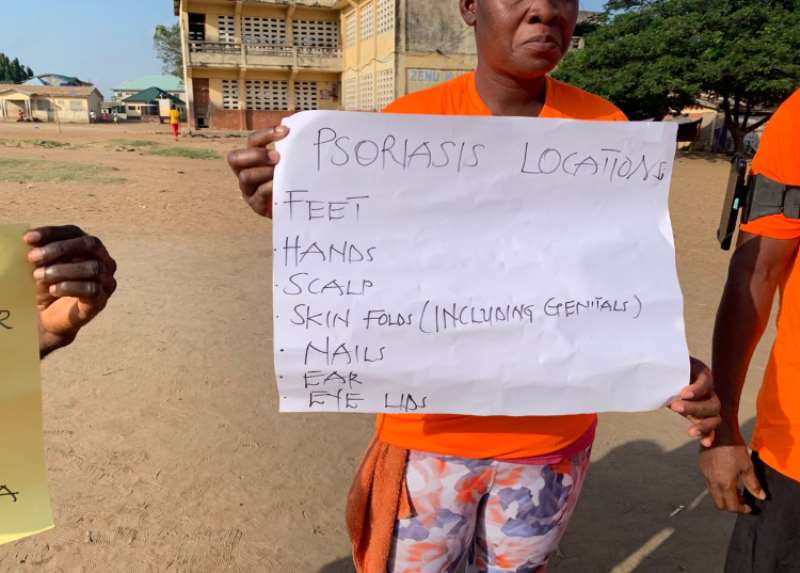 PSORIASIS LOCATIONS
· FEET
· HANDS
· SCALP
· SKIN FOLDS (INCLUDING GENITALS)
· NAILS
· EAR
· EYE LIDS
ZENU
R
A